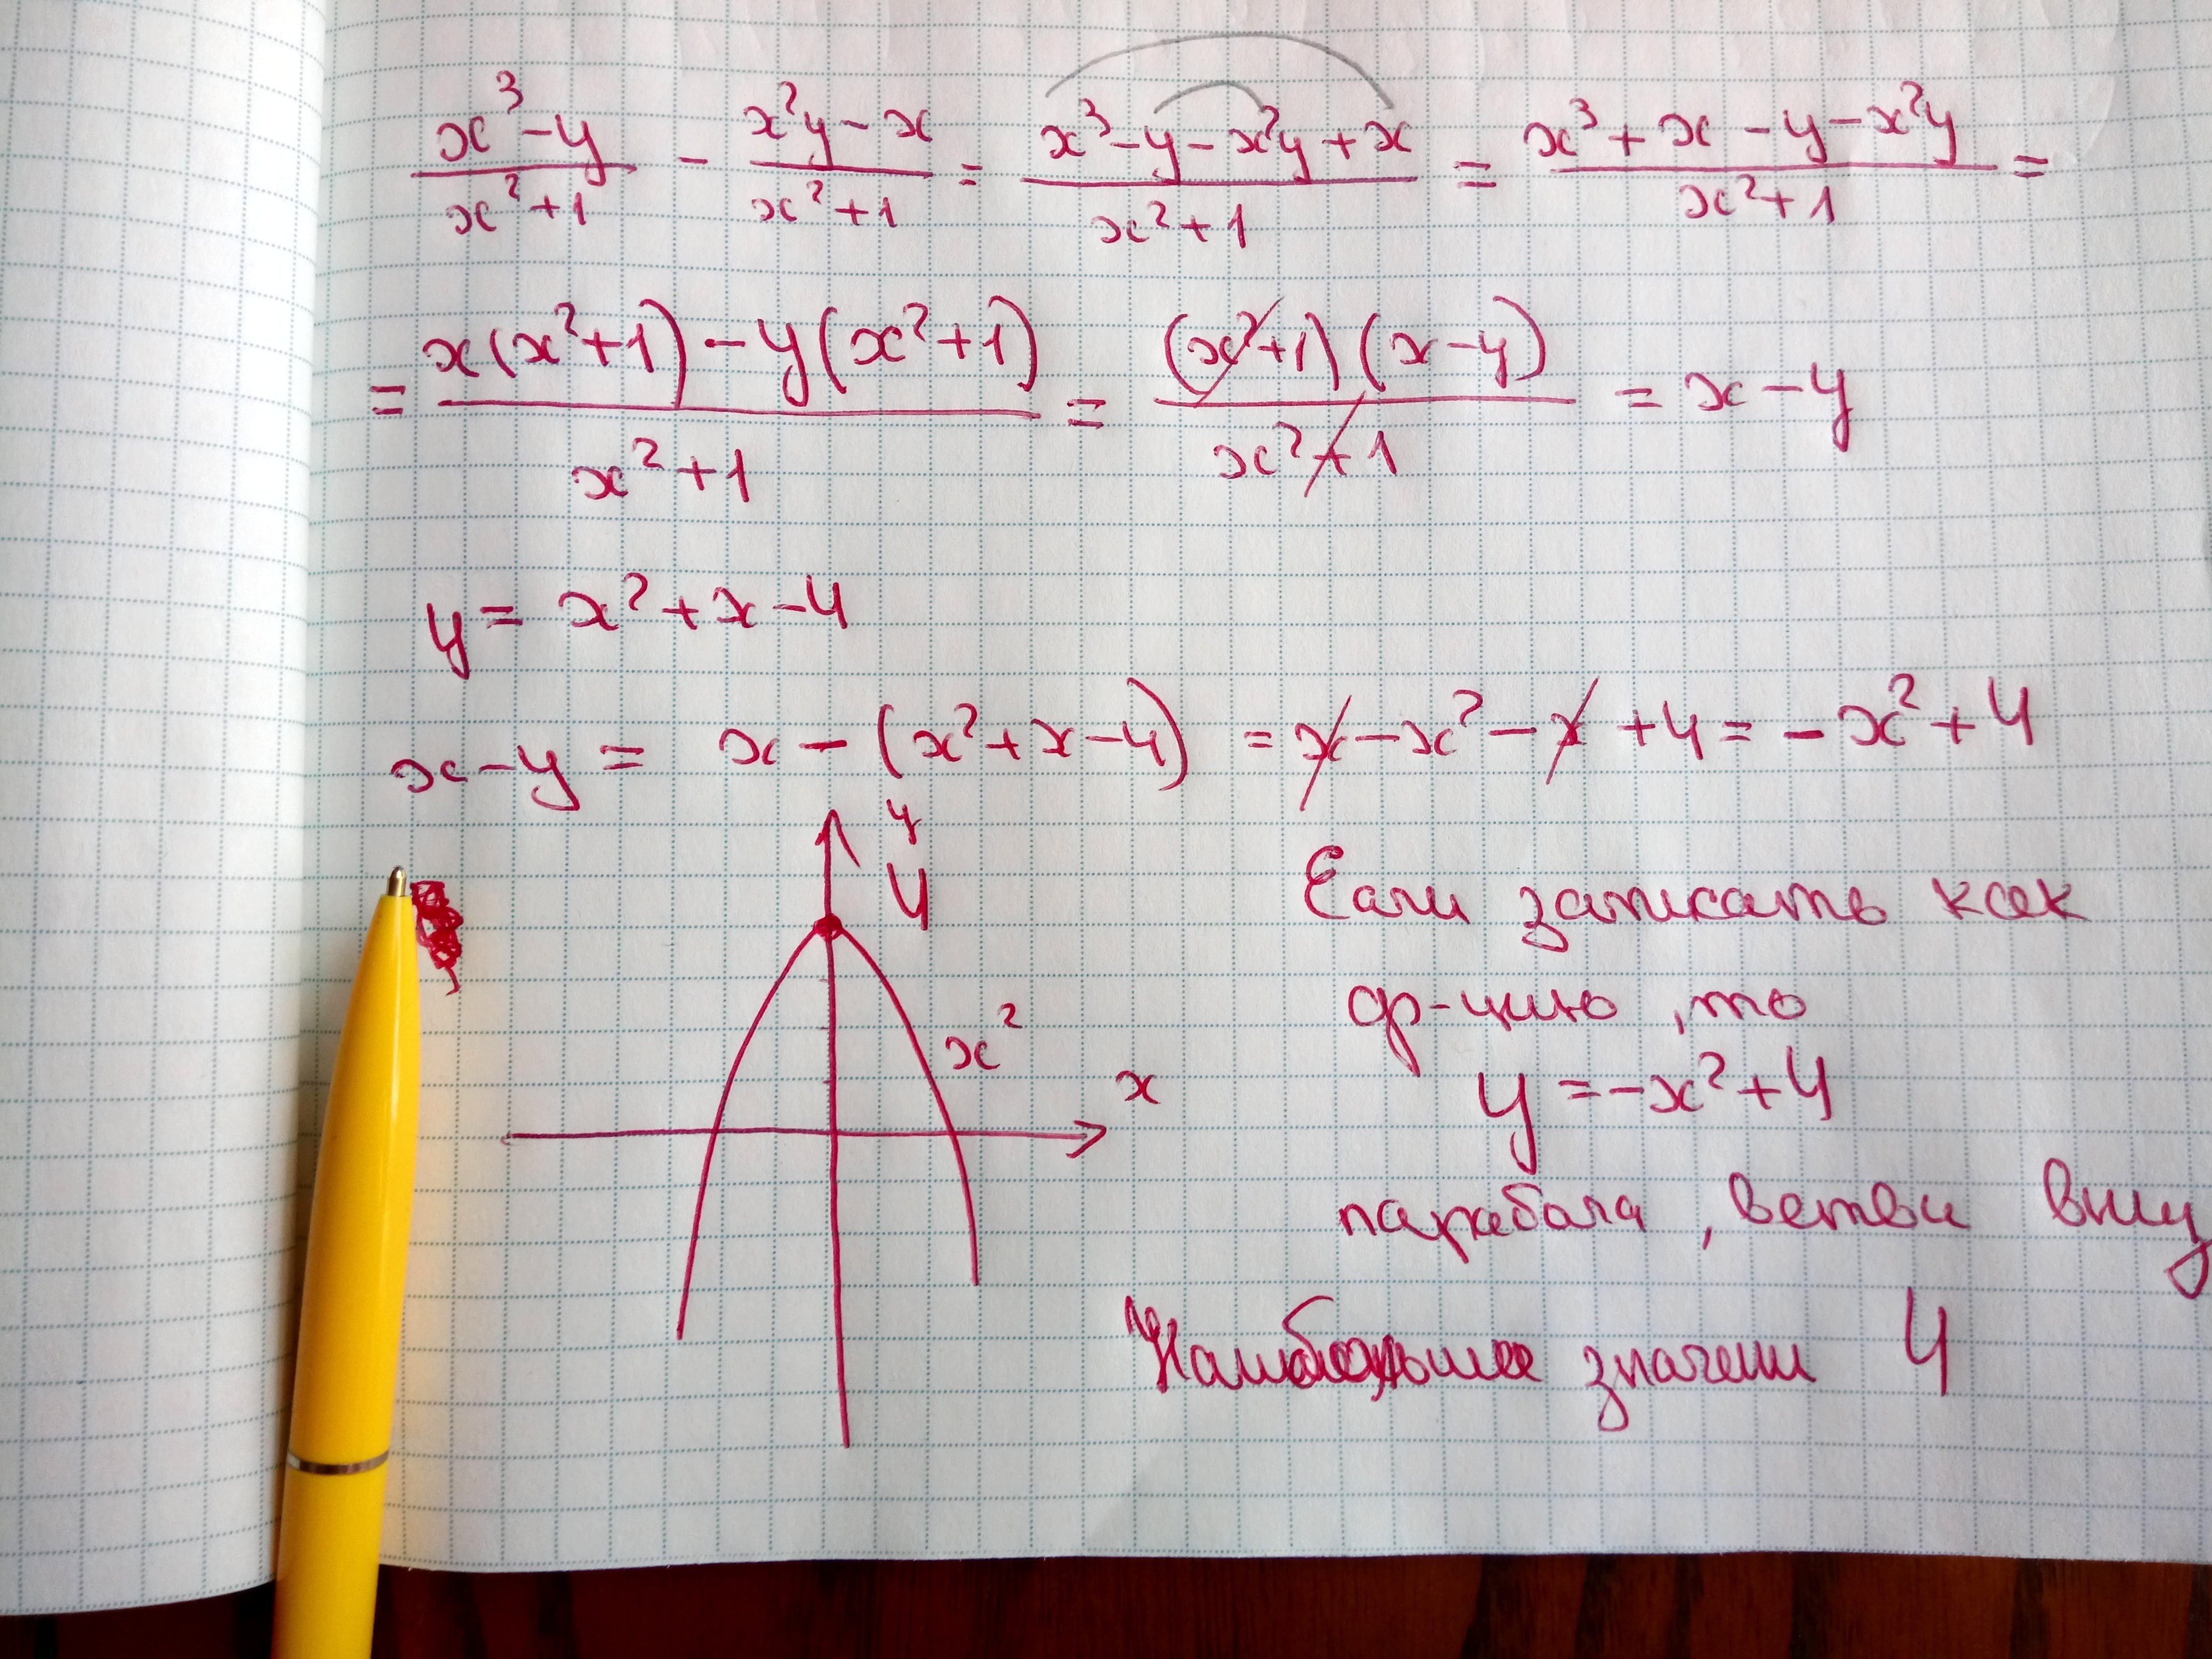 x³-y / x²+1 - x²y-x / x²+1 = x³-y-x²y+x / x²+1 = x³+x-y-x²y / x²+1 =
= x(x²+1)-y(x²+1) / x²+1 = (x²+1)(x-y) / x²+1 = x-y
y = x²+x-4
x-y = x-(x²+x-4) = x-x²-x+4 = -x²+4
y
4
x²
x
Если записать как
ф-цию, то
y = -x²+4
парабола, ветви вниз
Наибольшее значени 4